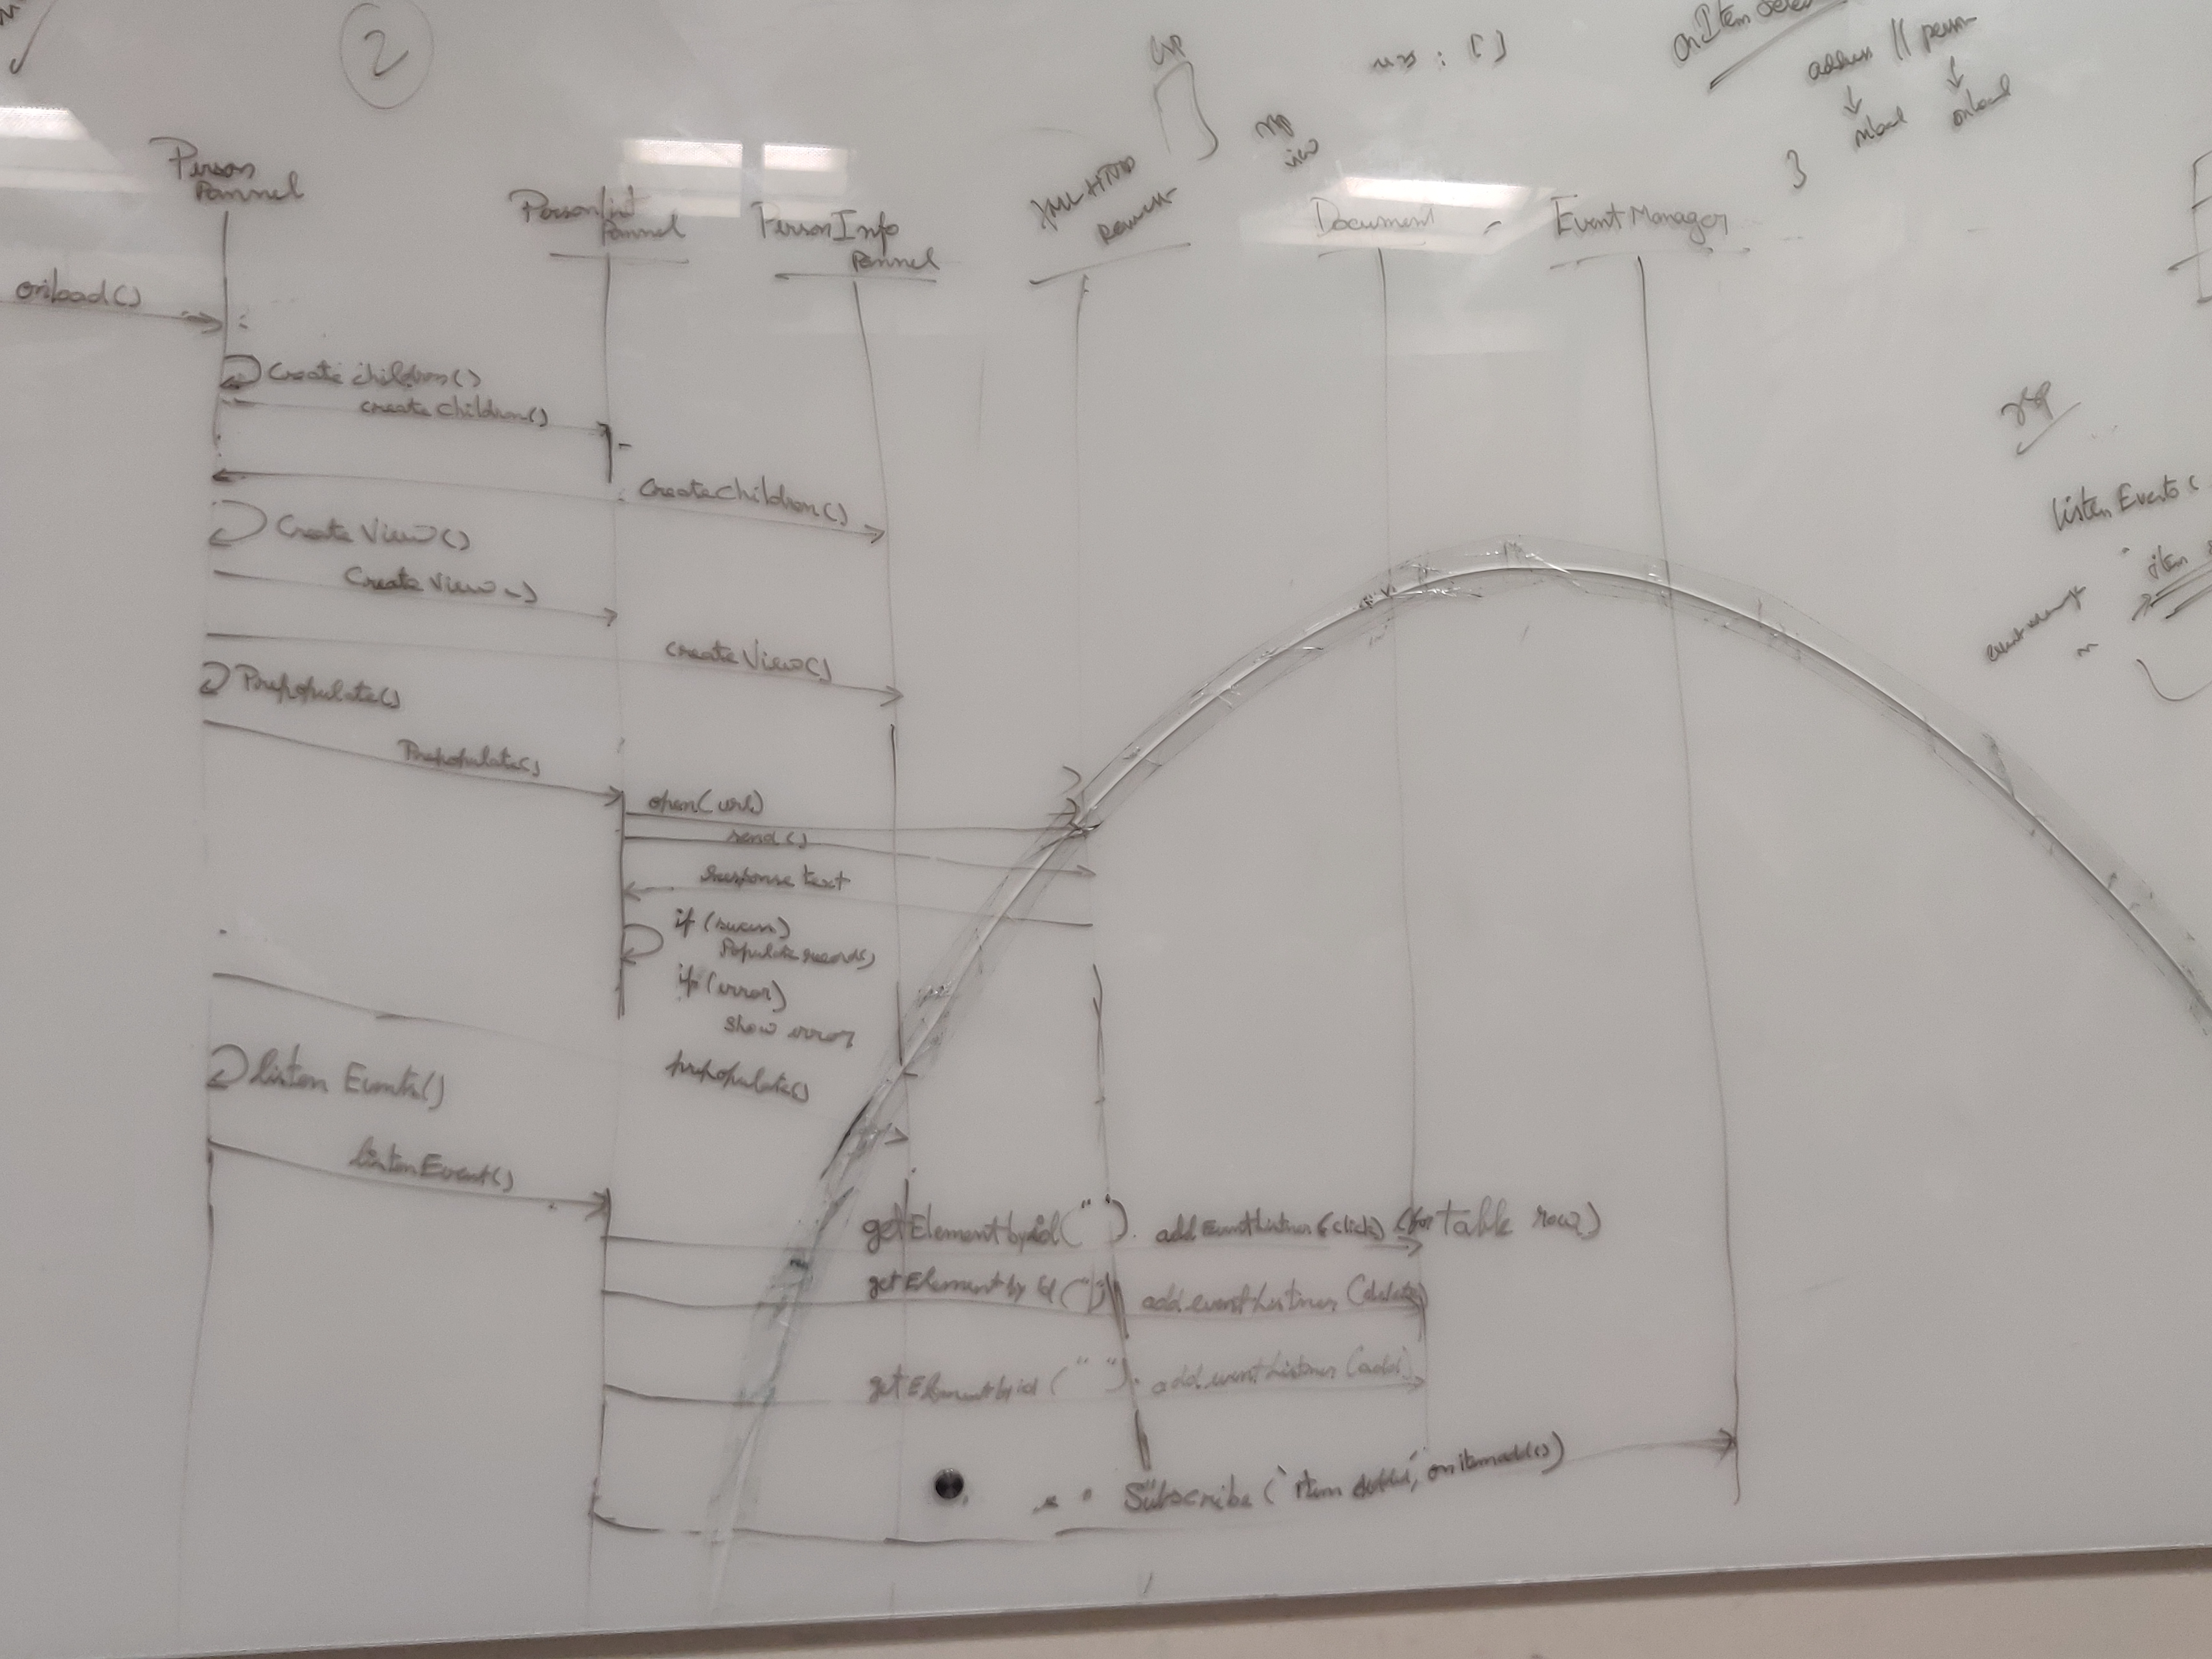 2
Person
Pannel
Person List
Pannel
PersonInfo
Pannel
XML HTTP
Request
Document
EventManager
address || person
onload
3
onload()
Create children()
create children()
CreateChildren()
Create View()
Create View
create View()
Prepopulate()
Prepopulate()
open(url)
send()
Response text
if (success)
Populate records()
if (error)
show error
prepopulate()
listen Events()
listenEvent()
getElementbyid(" "). addEventListener (click) (for table row)
getElement by Id (" ") add.eventListener (delete)
getElementbyid (" "). add.eventListener (add)
Subscribe ('item added', onitemadd())
listen Events (
item